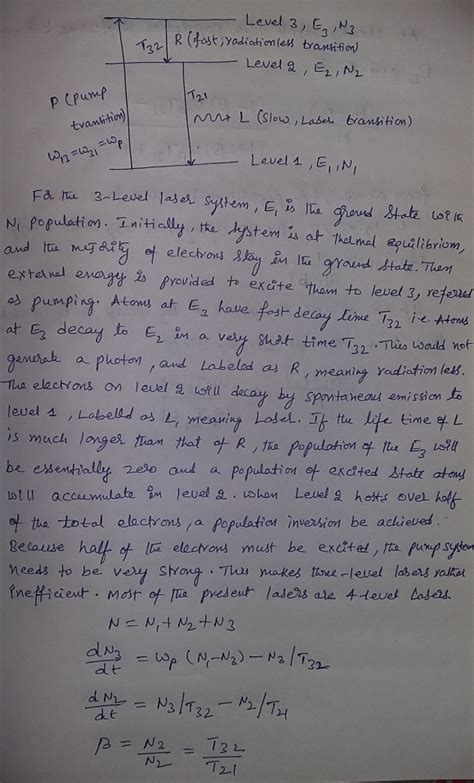 Level 3, E3, N3
T32
R (fast, radiationless transition)
Level 2, E2, N2
P (pump
transition)
W13=W31=Wp
T21
L (slow, Laser transition)
Level 1, E1, N1
For the 3-Level laser system, E1 is the ground state with
N1 population. Initially, the system is at thermal equilibrium,
and the majority of electrons stay in the ground state. Then
external energy is provided to excite them to level 3, referred
as pumping. Atoms at E3 have fast decay time T32 i.e. Atoms
at E3 decay to E2 in a very short time T32. This would not
generate a photon, and Labeled as R, meaning radiationless.
The electrons on level 2 will decay by spontaneous emission to
level 1, Labelled as L, meaning Laser. If the life time of L
is much longer than that of R, the population of the E3 will
be essentially zero and a population of excited state atoms
will accumulate in level 2. When Level 2 hosts over half
of the total electrons, a population inversion be achieved.
Because half of the electrons must be excited, the pump system
needs to be very strong. This makes three-level lasers rather
inefficient. Most of the present lasers are 4-level lasers.
N = N1 + N2 + N3
dN3/dt = Wp (N1-N3) - N3/T32
dN2/dt = N3/T32 - N2/T21
β = N3/N2 = T32/T21